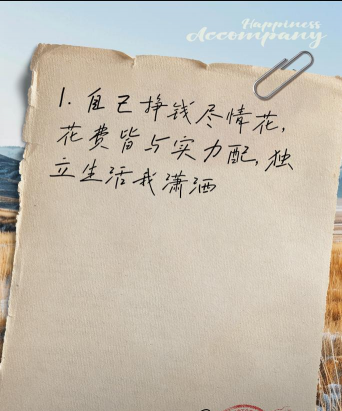 Happiness
Accompany
1. 自己挣钱尽情花,
花费皆与实力配, 独
立生活我潇洒